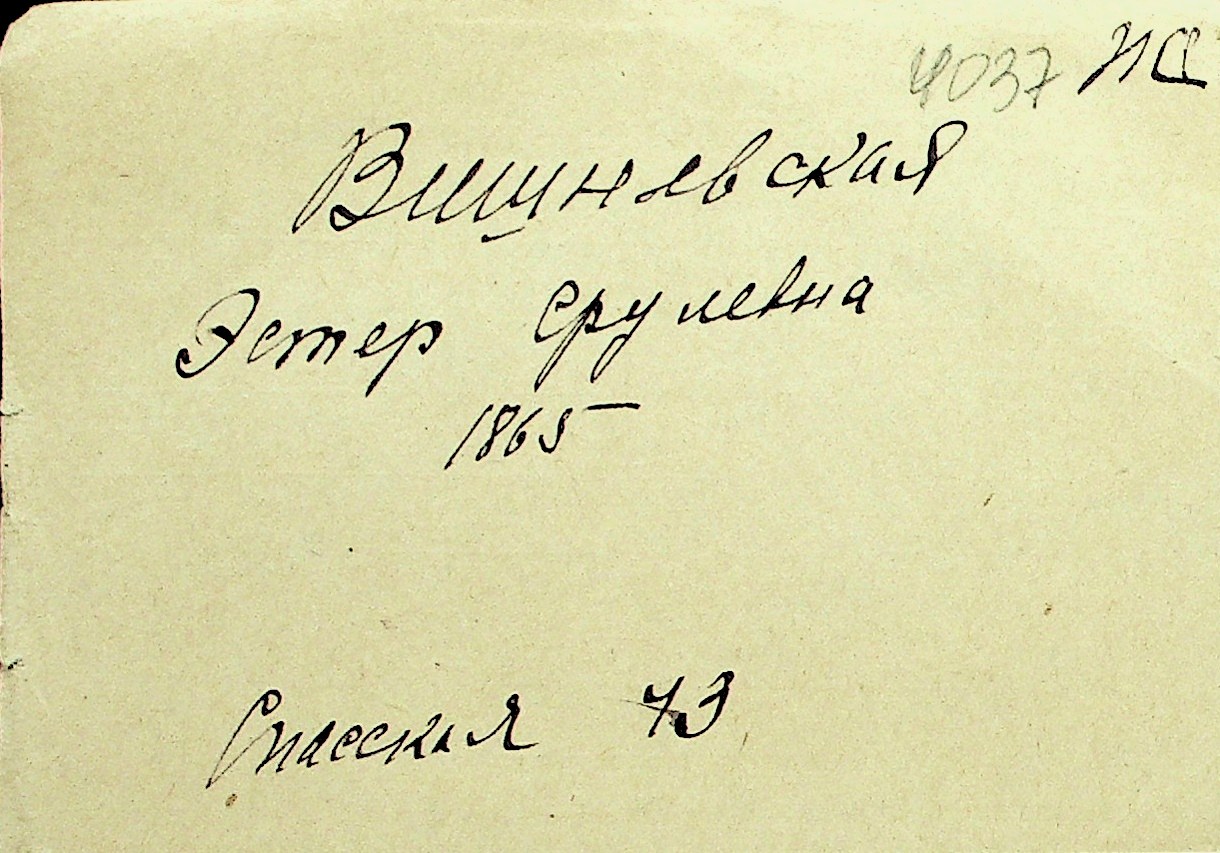 4037
Вишневская
Эстер Срулевна
1865
Спасская 43